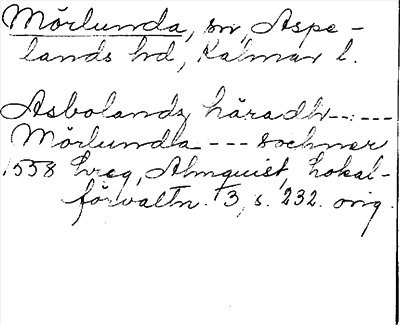 Mörlunda, sn, Aspe-
lands hd, Kalmar l.
Asbolandz häradh---
Mörlunda --- sochner
1558 hreg, Almquist, Lokal-
förvaltn. 3, s. 232. orig.